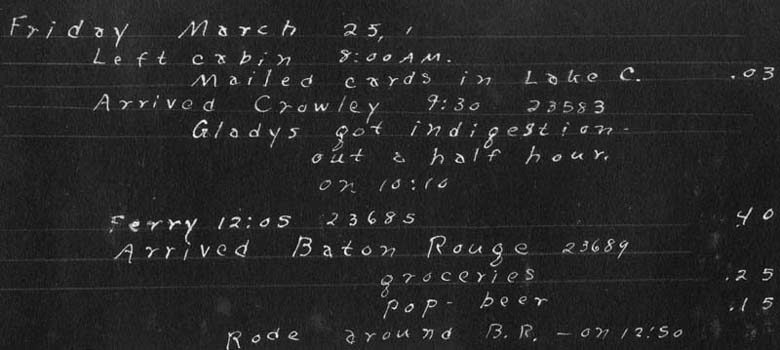 Friday March 25,
Left cabin 8:00 AM.
Mailed cards in Lake C. .03
Arrived Crowley 9:30 23583
Gladys got indigestion-
out a half hour.
on 10:10
Ferry 12:05 23685 40
Arrived Baton Rouge 23689
groceries .25
pop- beer .15
Rode around B.R. - on 12:50